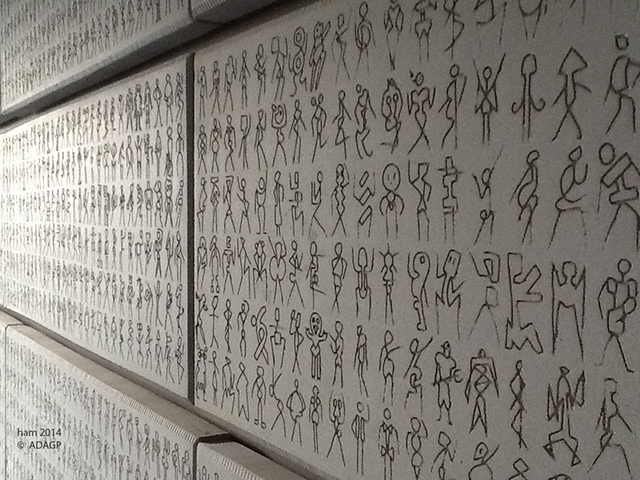 ham 2014
© ADAGP